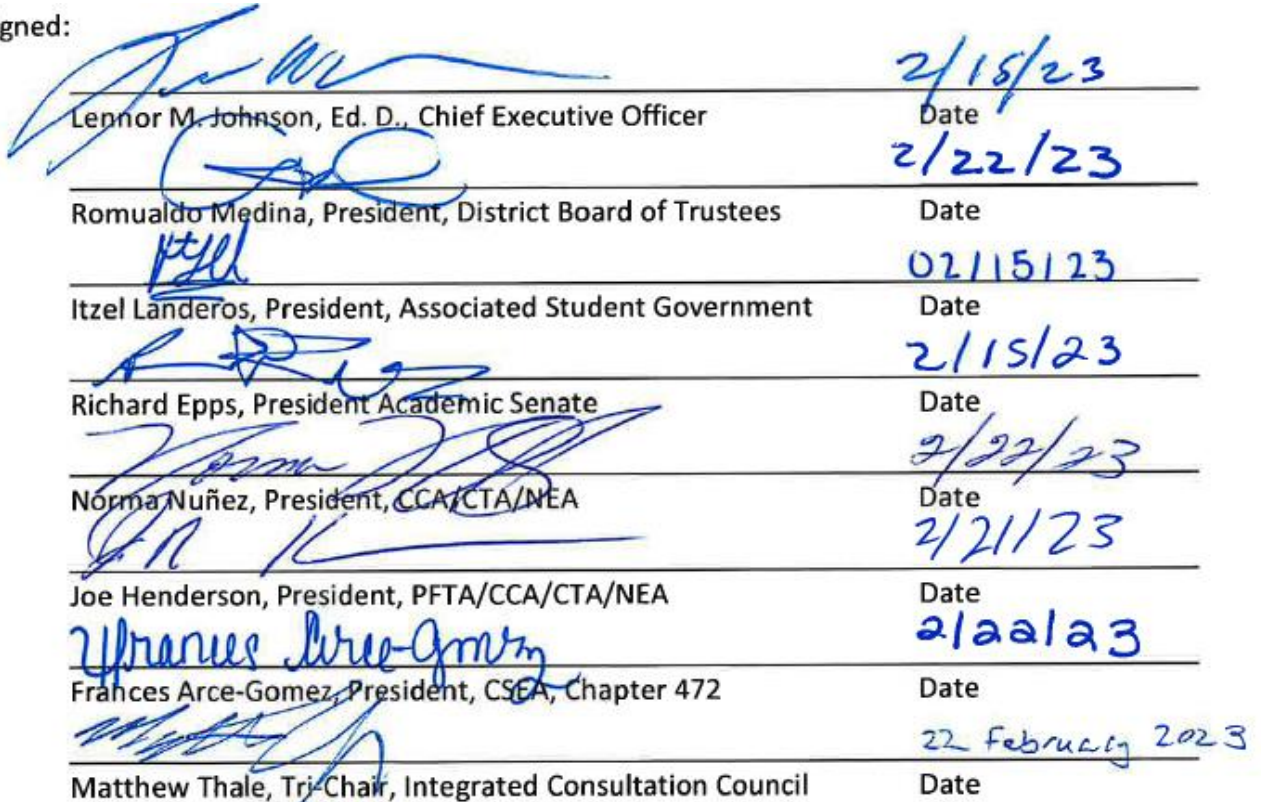 gned:
2/15/23
Lennor M. Johnson, Ed. D., Chief Executive Officer Date
2/22/23
Romualdo Medina, President, District Board of Trustees Date
02/15/23
Itzel Landeros, President, Associated Student Government Date
2/15/23
Richard Epps, President Academic Senate Date
Norma 2/22/23
Norma Nuñez, President, CCA/CTA/NEA Date
2/21/23
Joe Henderson, President, PFTA/CCA/CTA/NEA Date
Frances Arce-Gomez 2/22/23
Frances Arce-Gomez, President, CSEA, Chapter 472 Date
22 February 2023
Matthew Thale, Tri-Chair, Integrated Consultation Council Date